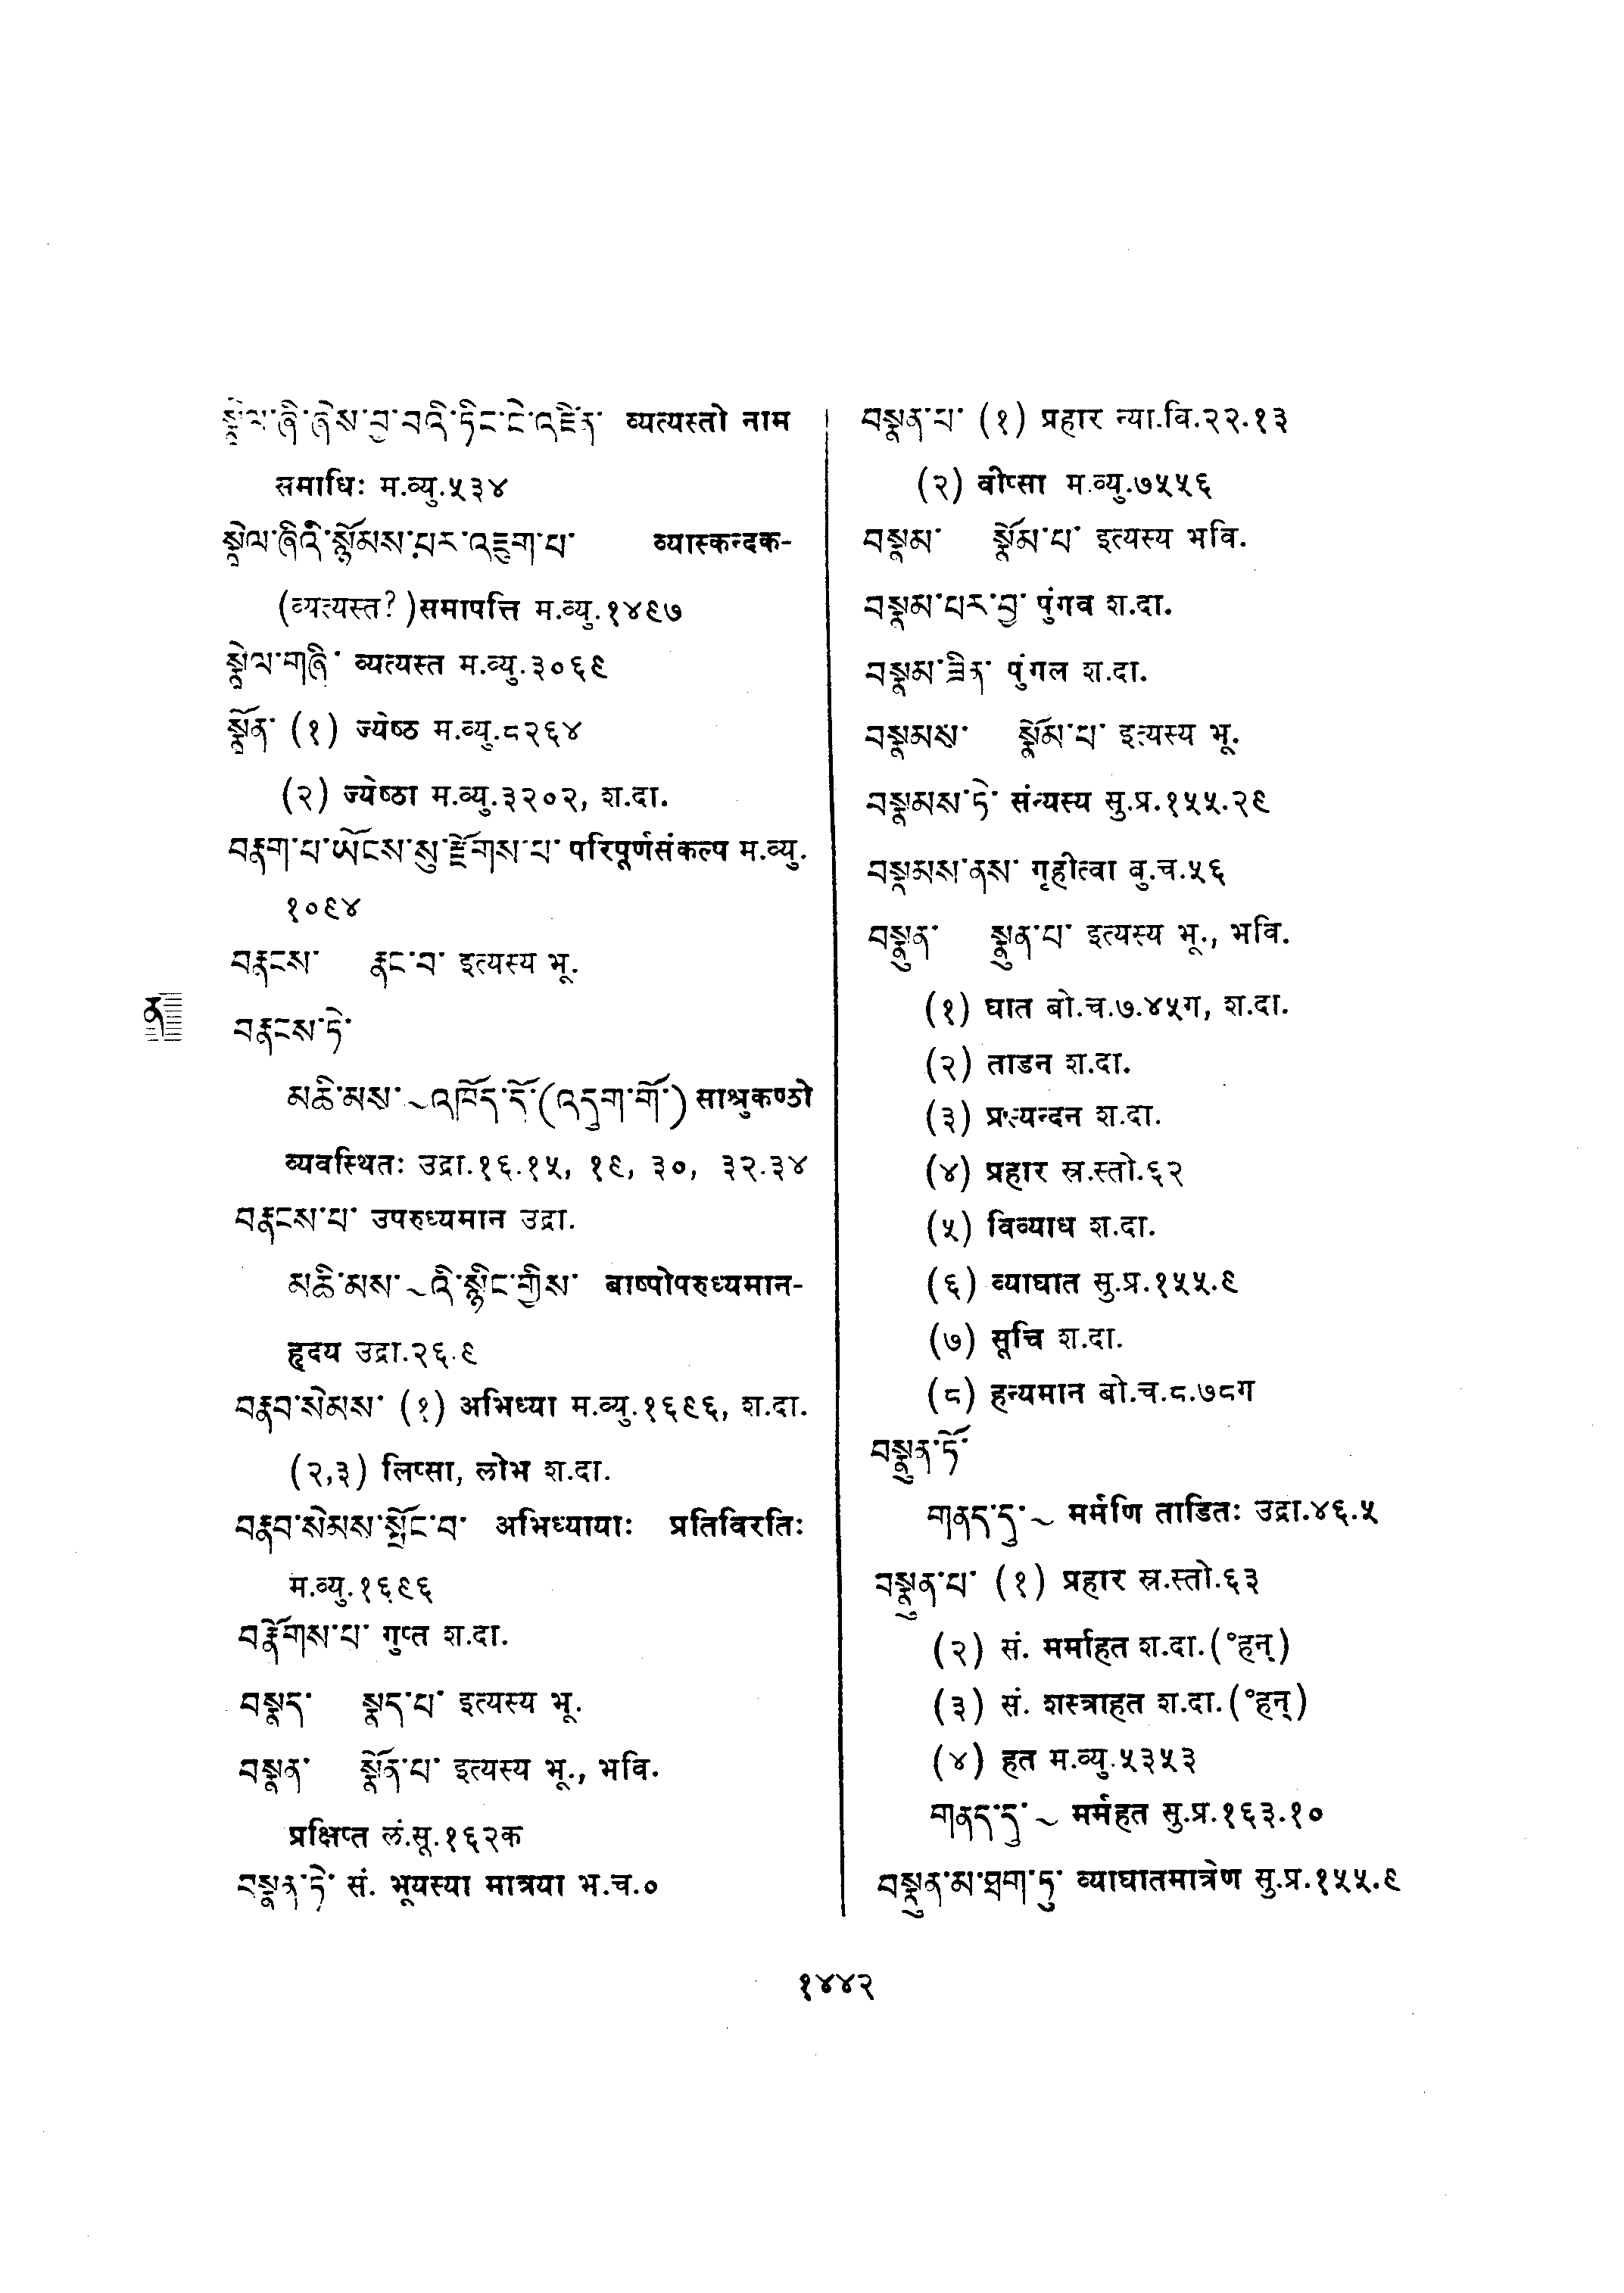 སྣྲེལ་ཞི་ཞེས་བྱ་བའི་ཏིང་ངེ་འཛིན་ व्यत्यस्तो नाम
समाधिः म.व्यु.५३४
སྣྲེལ་ཞིའི་སྙོམས་པར་འཇུག་པ་ व्यास्कन्दक-
(व्यत्यस्त?)समापत्ति म.व्यु.१४९७
སྣྲེལ་གཞི་ व्यत्यस्त म.व्यु.३०६९
སྣྲོན་ (१) ज्येष्ठ म.व्यु.८२६४
(२) ज्येष्ठा म.व्यु.३२०२, श.दा.
བརྣག་པ་ཡོངས་སུ་རྫོགས་པ་ परिपूर्णसंकल्प म.व्यु.
१०९४
བརྣངས་ རྣང་བ་ इत्यस्य भू.
ན
བརྣངས་ཏེ་
མཆི་མས་~འཁོད་དོ་(འདུག་གོ་) साश्रुकण्ठो
व्यवस्थितः उद्रा.१६.१५, १९, ३०, ३२.३४
བརྣངས་པ་ उपरुध्यमान उद्रा.
མཆི་མས་~འི་སྙིང་གྱིས་ बाष्पोपरुध्यमान-
हृदय उद्रा.२६.९
བརྣབ་སེམས་ (१) अभिध्या म.व्यु.१६९६, श.दा.
(२,३) लिप्सा, लोभ श.दा.
བརྣབ་སེམས་སྤོང་བ་ अभिध्यायाः प्रतिविरतिः
म.व्यु.१६९६
བརྣོགས་པ་ गुप्त श.दा.
བསྣད་ སྣད་པ་ इत्यस्य भू.
བསྣན་ སྣོན་པ་ इत्यस्य भू., भवि.
प्रक्षिप्त लं.सू.१६२क
བསྣན་ཏེ་ सं. भूयस्या मात्रया भ.च.०
བསྣན་པ་ (१) प्रहार न्या.वि.२२.१३
(२) वीप्सा म.व्यु.७५५६
བསྣམ་ སྣོམ་པ་ इत्यस्य भवि.
བསྣམ་པར་བྱ་ पुंगव श.दा.
བསྣམ་ཟིན་ पुंगल श.दा.
བསྣམས་ སྣོམ་པ་ इत्यस्य भू.
བསྣམས་ཏེ་ संन्यस्य सु.प्र.१५५.२९
བསྣམས་ནས་ गृहीत्वा बु.च.५६
བསྣུན་ སྣུན་པ་ इत्यस्य भू., भवि.
(१) घात बो.च.७.४५ग, श.दा.
(२) ताडन श.दा.
(३) प्रस्यन्दन श.दा.
(४) प्रहार स्र.स्तो.६२
(५) विव्याध श.दा.
(६) व्याघात सु.प्र.१५५.९
(७) सूचि श.दा.
(८) हन्यमान बो.च.८.७८ग
བསྣུན་ཏོ་
གནད་དུ་~ मर्मणि ताडितः उद्रा.४६.५
བསྣུན་པ་ (१) प्रहार स्र.स्तो.६३
(२) सं. मर्माहत श.दा.(°हन्)
(३) सं. शस्त्राहत श.दा.(°हन्)
(४) हत म.व्यु.५३५३
གནད་དུ་~ मर्महत सु.प्र.१६३.१०
བསྣུན་མ་ཐག་ཏུ་ व्याघातमात्रेण सु.प्र.१५५.९
१४४२